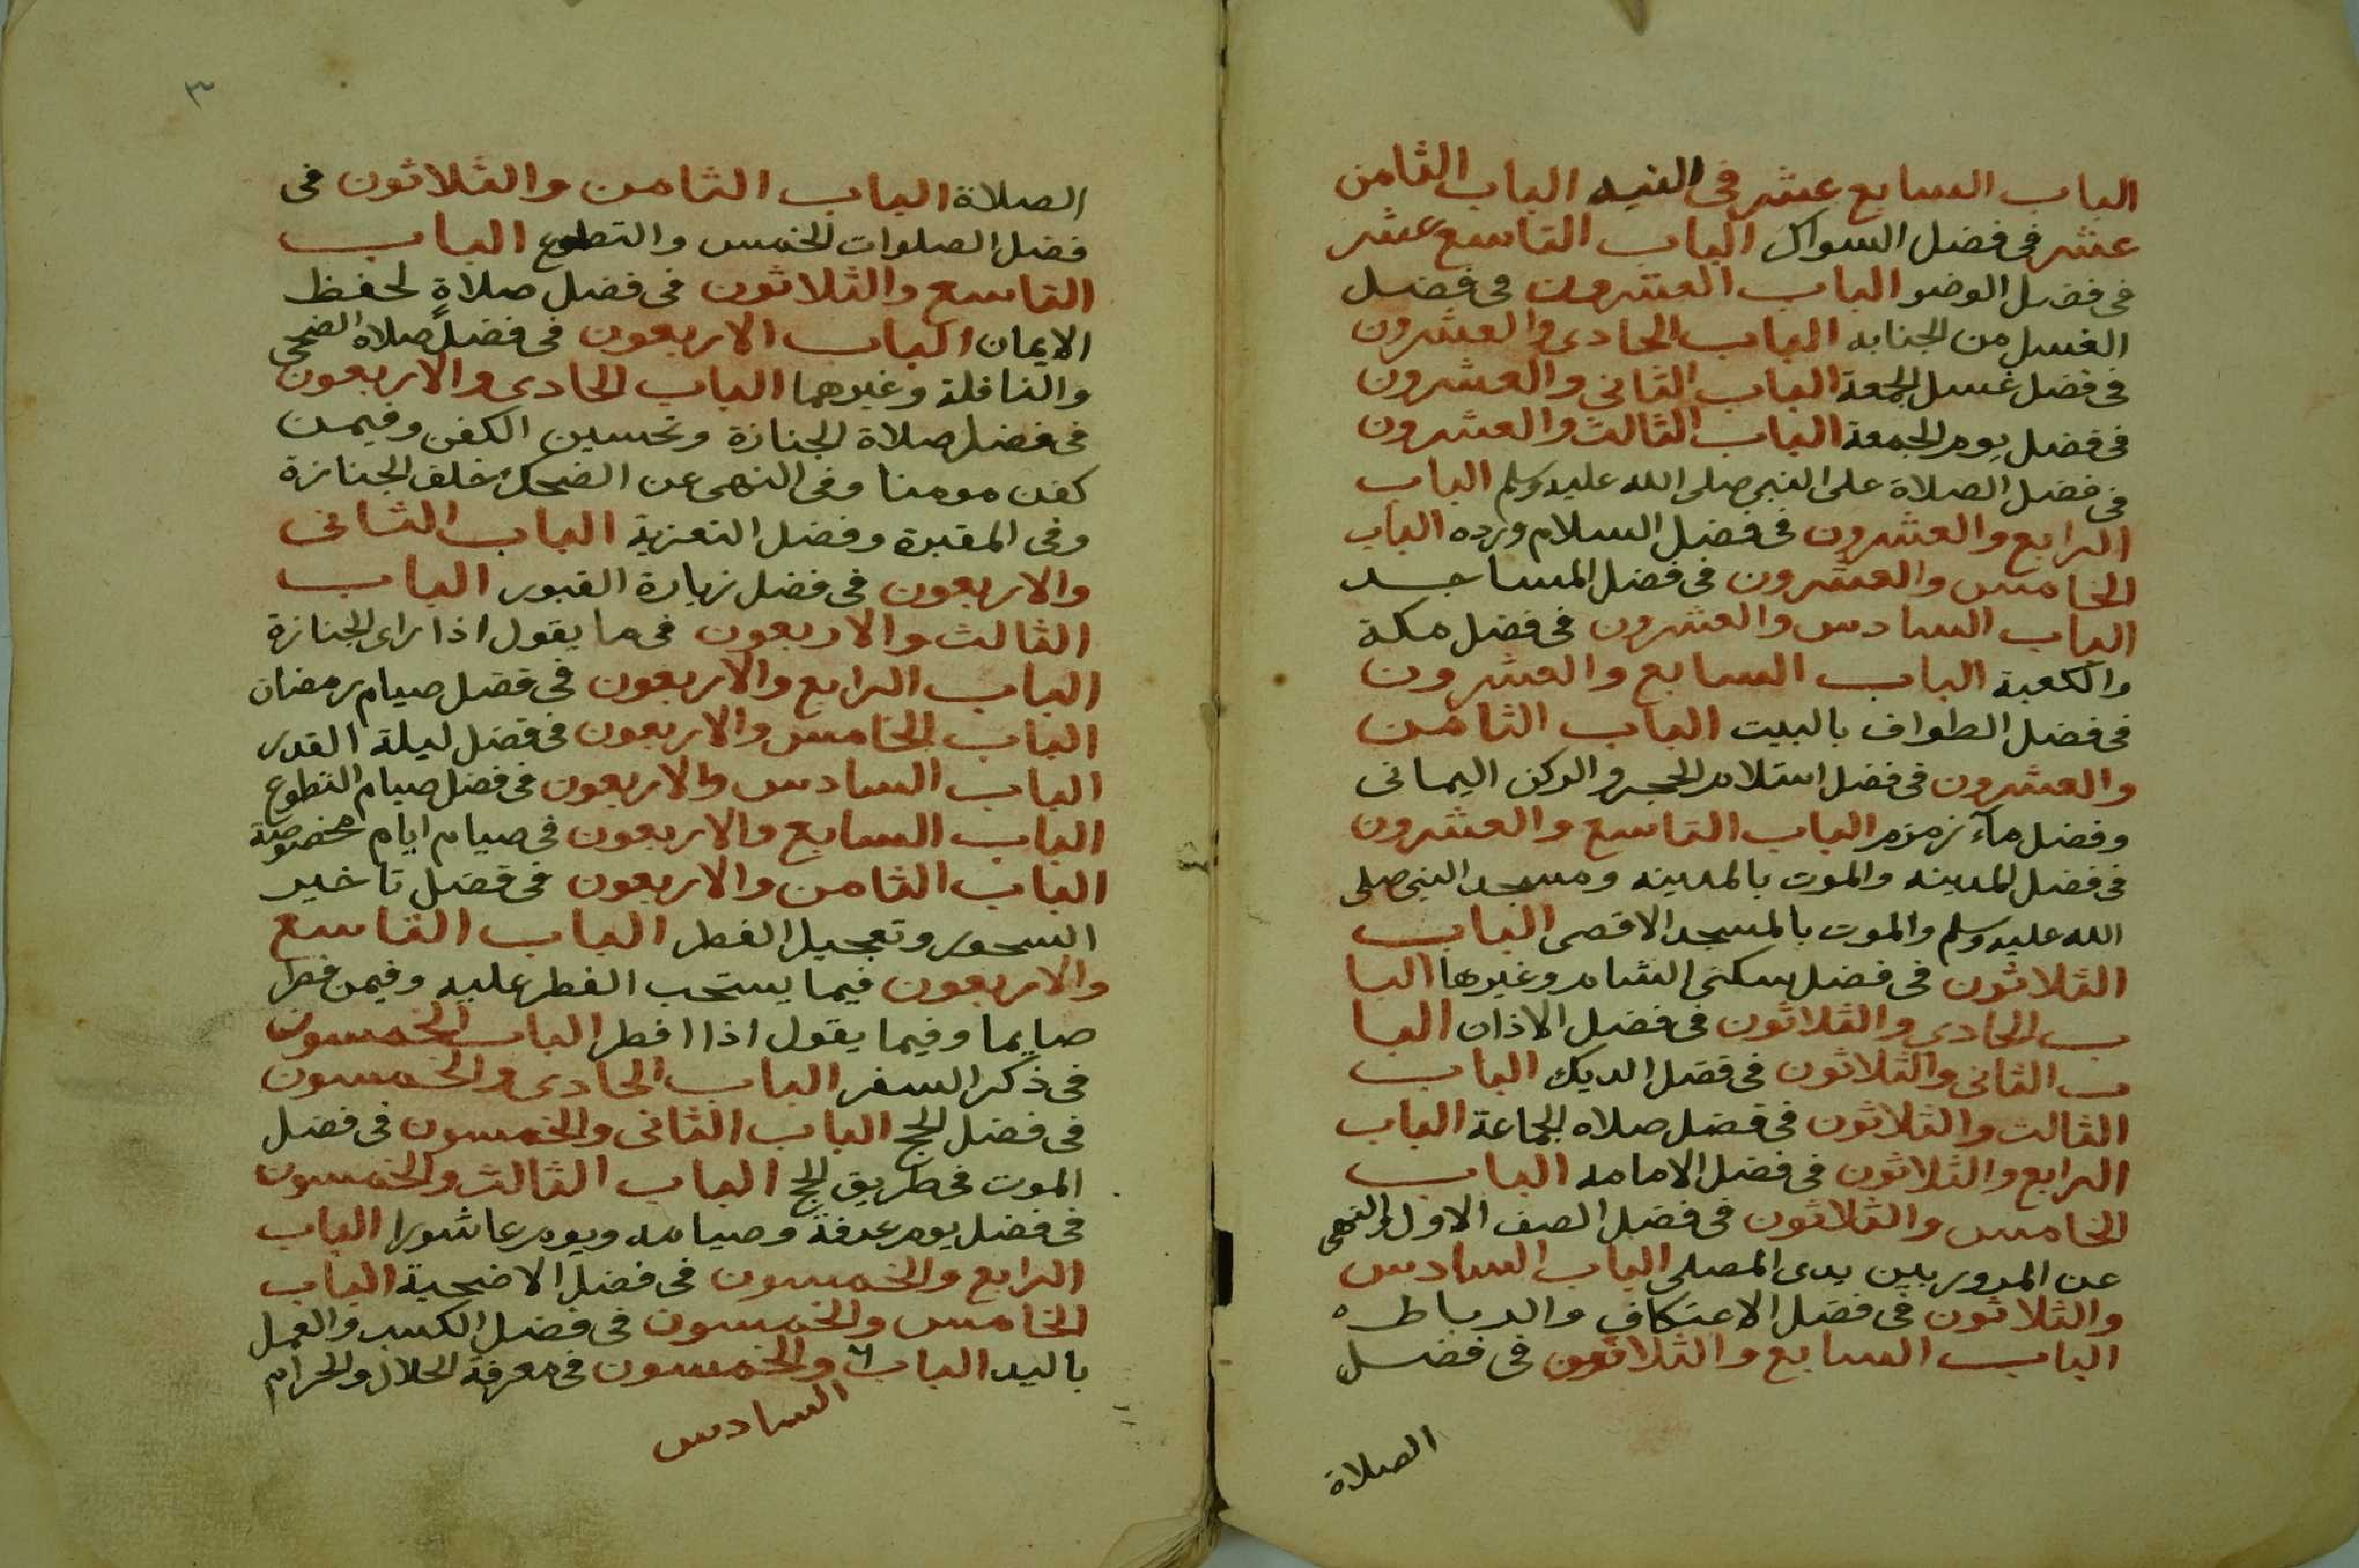 الباب السابع عشر فى النيه الباب الثامن
عشر فى فضل السواك الباب التاسع عشر
فى فضل الوضو الباب العشرون فى فضل
الغسل من الجنابه الباب الحادى والعشرون
فى فضل غسل الجمعة الباب الثانى والعشرون
فى فضل يوم الجمعة الباب الثالث والعشرون
فى فضل الصلاة على النبى صلى الله عليه وسلم الباب
الرابع والعشرون فى فضل السلام ورده الباب
الخامس والعشرون فى فضل المساجد
الباب السادس والعشرون فى فضل مكة
والكعبة الباب السابع والعشرون
فى فضل الطواف بالبيت الباب الثامن
والعشرون فى فضل استلام الحجر والركن اليمانى
وفضل ماء زمزم الباب التاسع والعشرون
فى فضل المدينه والموت بالمدينه ومسجد النبى صلى
الله عليه وسلم والموت بالمسجد الاقصى الباب
الثلاثون فى فضل سكنى الشام وغيرها البا
ب الحادى والثلاثون فى فضل الاذان البا
ب الثانى والثلاثون فى فضل الديك الباب
الثالث والثلاثون فى فضل صلاه الجماعة الباب
الرابع والثلاثون فى فضل الامامه الباب
الخامس والثلاثون فى فضل الصف الاول والنهى
عن المرور بين يدى المصلى الباب السادس
والثلاثون فى فضل الاعتكاف والرباط ه
الباب السابع والثلاثون فى فضل
الصلاة
٣
الصلاة الباب الثامن والثلاثون فى
فضل الصلوات الخمس والتطوع الباب
التاسع والثلاثون فى فضل صلاةٍ لحفظ
الايمان الباب الاربعون فى فضل صلاه الضحى
والنافلة وغيرهما الباب الحادى والاربعون
فى فضل صلاة الجنازة وتحسين الكفن وفيمن
كفن مومنا وفى النهى عن الضحك خلف الجنازة
وفى المقبرة وفضل التعزية الباب الثانى
والاربعون فى فضل زيارة القبور الباب
الثالث والاربعون فى ما يقول اذا راى الجنازة
الباب الرابع والاربعون فى فضل صيام رمضان
الباب الخامس والاربعون فى فضل ليلة القدر
الباب السادس والاربعون فى فضل صيام التطوع
الباب السابع والاربعون فى صيام ايام مخصوصة
الباب الثامن والاربعون فى فضل تاخير
السحور وتعجيل الفطر الباب التاسع
والاربعون فيما يستحب الفطر عليه وفيمن فطر
صايما وفيما يقول اذا افطر الباب الخمسون
فى ذكر السفر الباب الحادى والخمسون
فى فضل الحج الباب الثانى والخمسون فى فضل
الموت فى طريق الحج الباب الثالث والخمسون
فى فضل يوم عرفة وصيامه ويوم عاشورا الباب
الرابع والخمسون فى فضل الاضحية الباب
الخامس والخمسون فى فضل الكسب والعمل
باليد الباب والخمسون فى معرفة الحلال والحرام
السادس